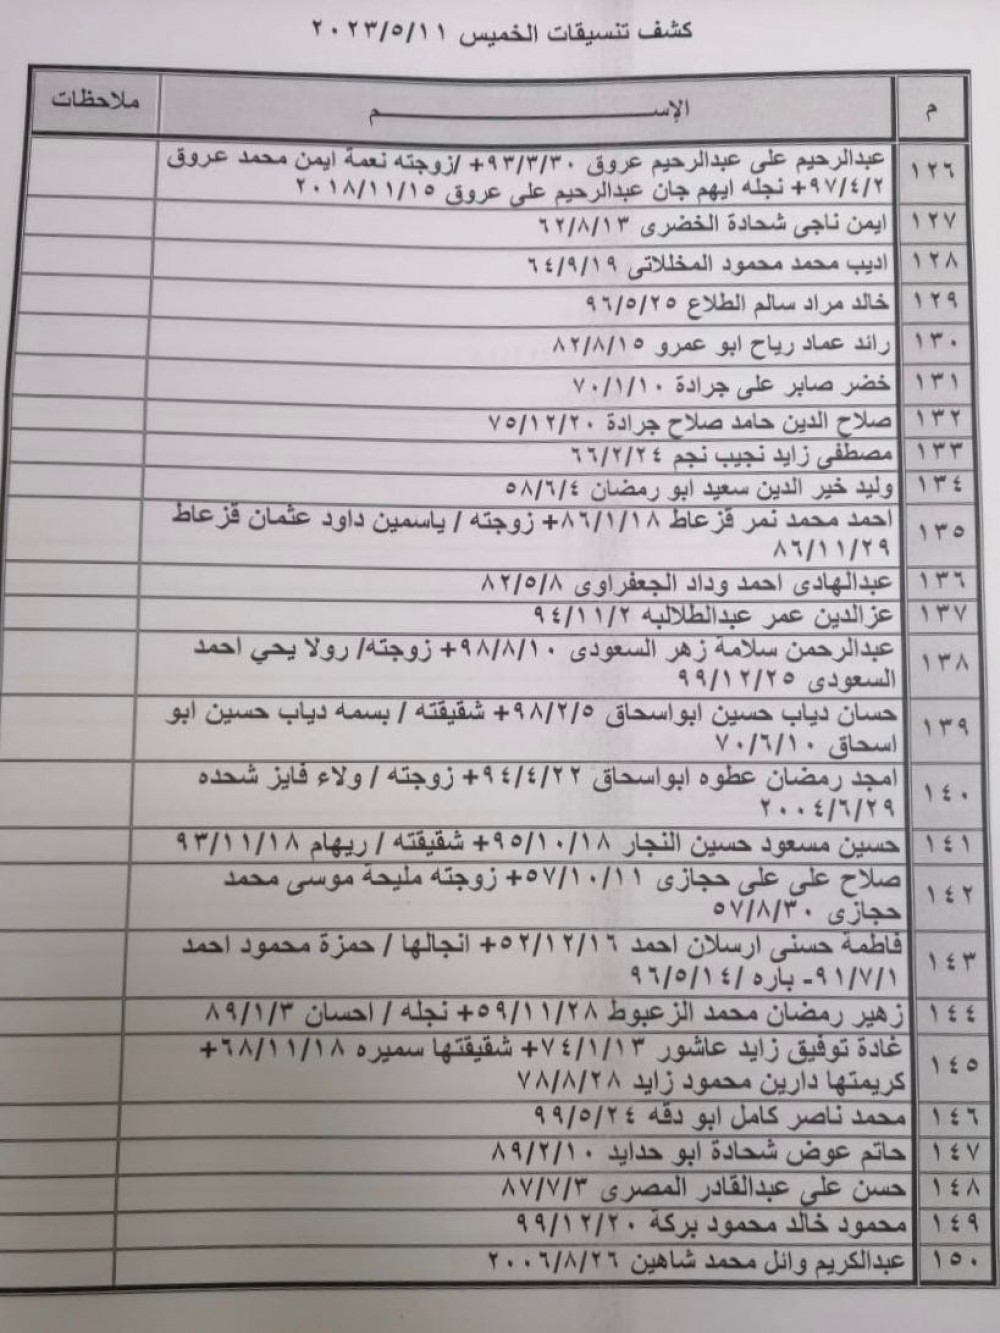 كشف تنسيقات الخميس ٢٠٢٣/٥/١١
م الإســـــم ملاحظات
١٢٦ عبدالرحيم على عبدالرحيم عروق ٩٣/٣/٣٠+ /زوجته نعمة ايمن محمد عروق
٩٧/٤/٢+ نجله ايهم جان عبدالرحيم على عروق ٢٠١٨/١١/١٥
١٢٧ ايمن ناجى شحادة الخضرى ٦٢/٨/١٣
١٢٨ اديب محمد محمود المخللاتى ٦٤/٩/١٩
١٢٩ خالد مراد سالم الطلاع ٩٦/٥/٢٥
١٣٠ رائد عماد رياح ابو عمرو ٨٢/٨/١٥
١٣١ خضر صابر على جرادة ٧٠/١/١٠
١٣٢ صلاح الدين حامد صلاح جرادة ٧٥/١٢/٢٠
١٣٣ مصطفى زايد نجيب نجم ٦٦/٢/٢٤
١٣٤ وليد خير الدين سعيد ابو رمضان ٥٨/٦/٤
١٣٥ احمد محمد نمر قزعاط ٨٦/١/١٨+ زوجته / ياسمين داود عثمان قزعاط
٨٦/١١/٢٩
١٣٦ عبدالهادى احمد وداد الجعفراوى ٨٢/٥/٨
١٣٧ عزالدين عمر عبدالطلالبه ٩٤/١١/٢
١٣٨ عبدالرحمن سلامة زهر السعودى ٩٨/٨/١٠+ زوجته/ رولا يحي احمد
السعودى ٩٩/١٢/٢٥
١٣٩ حسان دياب حسين ابواسحاق ٩٨/٢/٥+ شقيقته / بسمه دياب حسين ابو
اسحاق ٧٠/٦/١٠
١٤٠ امجد رمضان عطوه ابواسحاق ٩٤/٤/٢٢+ زوجته / ولاء فايز شحده
٢٠٠٤/٦/٢٩
١٤١ حسين مسعود حسين النجار ٩٥/١٠/١٨+ شقيقته / ريهام ٩٣/١١/١٨
١٤٢ صلاح على على حجازى ٥٧/١٠/١١+ زوجته مليحة موسى محمد
حجازى ٥٧/٨/٣٠
١٤٣ فاطمة حسنى ارسلان احمد ٥٢/١٢/١٦+ انجالها / حمزة محمود احمد
٩١/٧/١- باره /٩٦/٥/١٤
١٤٤ زهير رمضان محمد الزعبوط ٥٩/١١/٢٨+ نجله / احسان ٨٩/١/٣
١٤٥ غادة توفيق زايد عاشور ٧٤/١/١٣+ شقيقتها سميره ٦٨/١١/١٨+
كريمتها دارين محمود زايد ٧٨/٨/٢٨
١٤٦ محمد ناصر كامل ابو دقه ٩٩/٥/٢٤
١٤٧ حاتم عوض شحادة ابو حدايد ٨٩/٢/١٠
١٤٨ حسن على عبدالقادر المصرى ٨٧/٧/٣
١٤٩ محمود خالد محمود بركة ٩٩/١٢/٢٠
١٥٠ عبدالكريم وائل محمد شاهين ٢٠٠٦/٨/٢٦